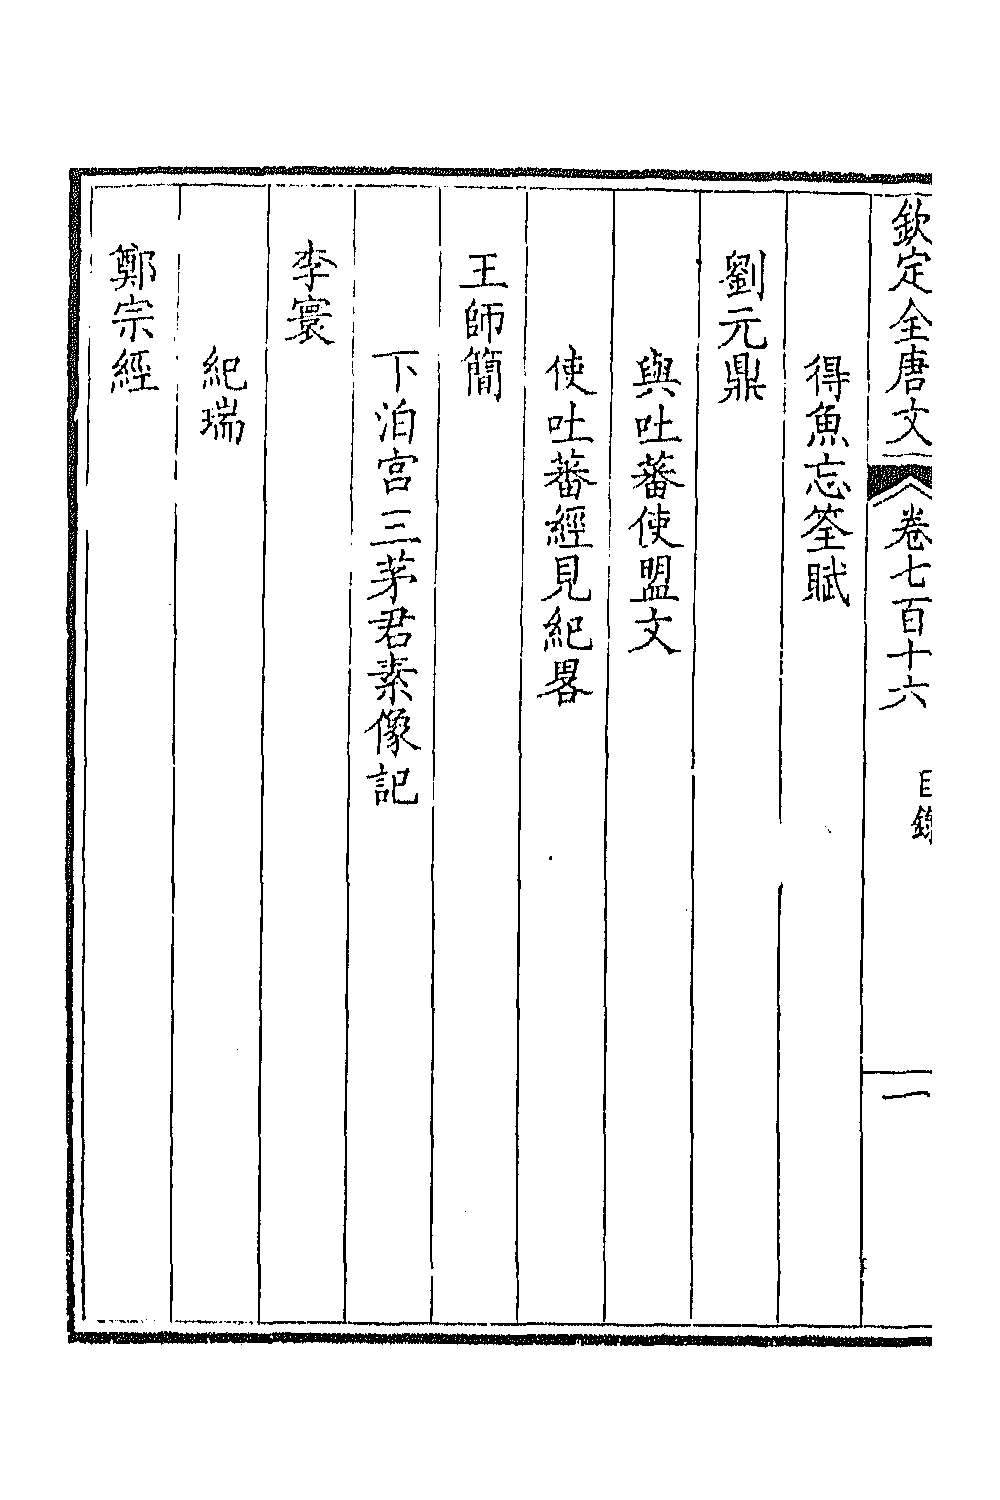 欽定全唐文 卷七百十六 目錄 一
得魚忘筌賦
劉元鼎
與吐蕃使盟文
使吐蕃經見紀畧
王師簡
下泊宮三茅君素像記
李寰
紀瑞
鄭宗經